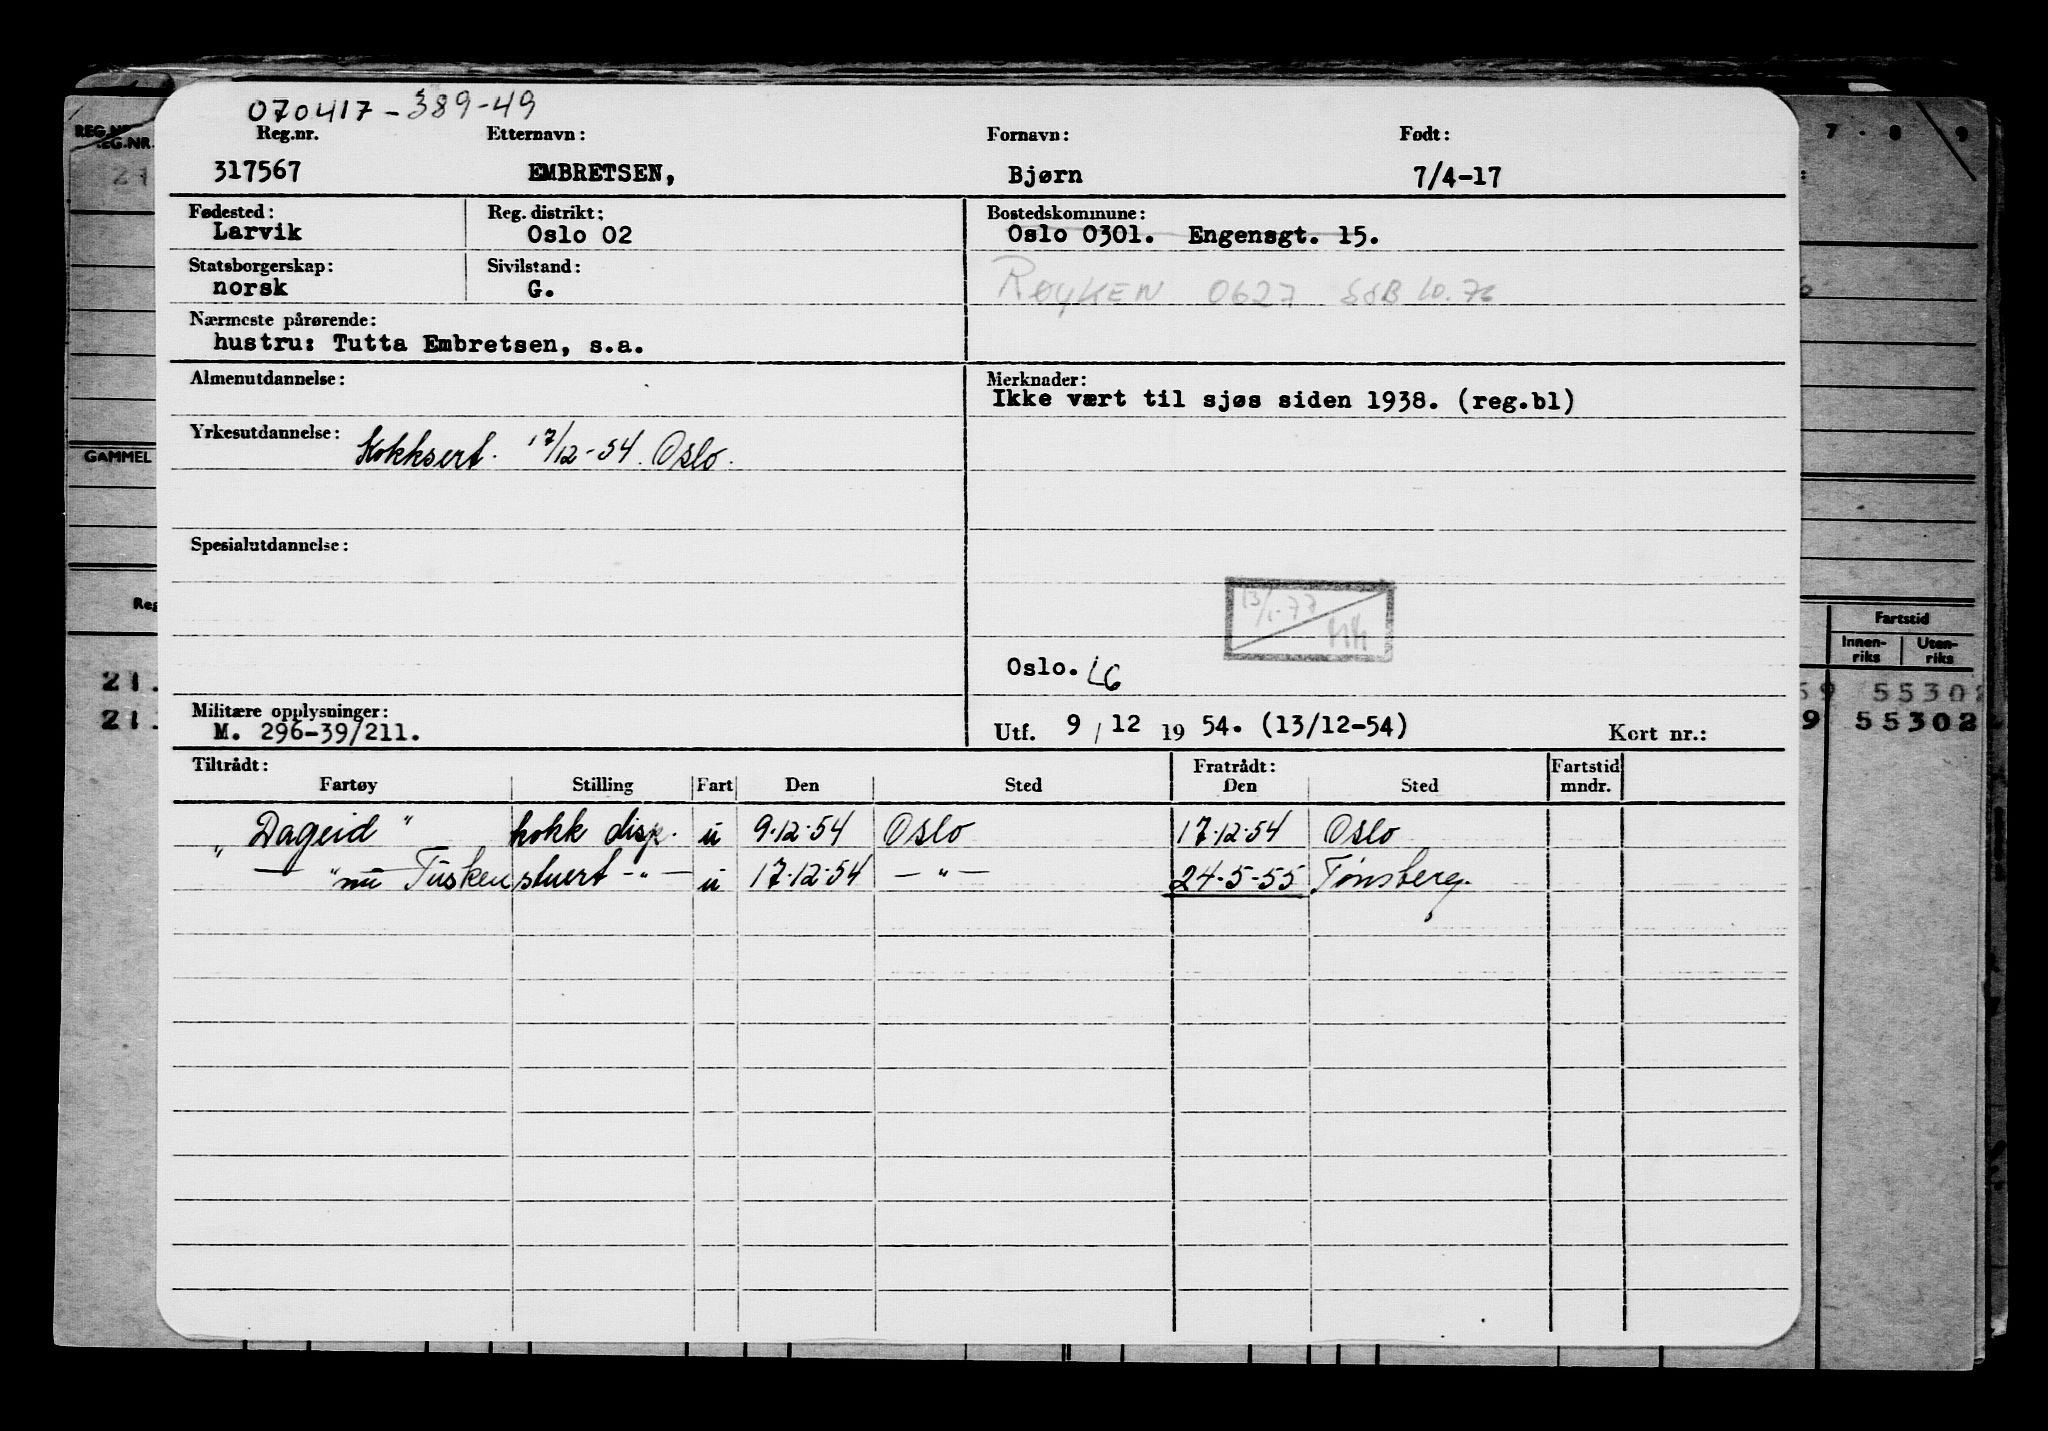 070417-389-49
Reg.nr. Etternavn: Fornavn: Født:
317567 EMBRETSEN, Bjørn 7/4-17
Fødested: Reg. distrikt: Bostedskommune:
Larvik Oslo 02 Oslo 0301. Engensgt. 15.
Statsborgerskap: Sivilstand:
norsk G. RØYKEN 0627 SSB 10.76
Nærmeste pårørende:
hustru: Tutta Embretsen, s.a.
Almenutdannelse: Merknader:
Ikke vært til sjøs siden 1938. (reg.bl)
Yrkesutdannelse: Kokksert. 17/12-54. Oslo.
Spesialutdannelse:
13/1-77
Oslo. LG
Militære opplysninger:
M. 296-39/211. Utf. 9/12 1954. (13/12-54) Kort nr.:
Tiltrådt: Fratrådt: Fartstid
Fartøy Stilling Fart Den Sted Den Sted mndr.
"Dageid" kokk disp. u 9.12.54 Oslo 17.12.54 Oslo
— " nu Tusken stuert -"- u 17.12.54 — " — 24.5-55 Tønsberg.
REG.NR.
GAMMEL
Reg
21.
21.
7 - 8 9
Fartstid
Innen-
riks
Uten-
riks
59 55302
9 55302